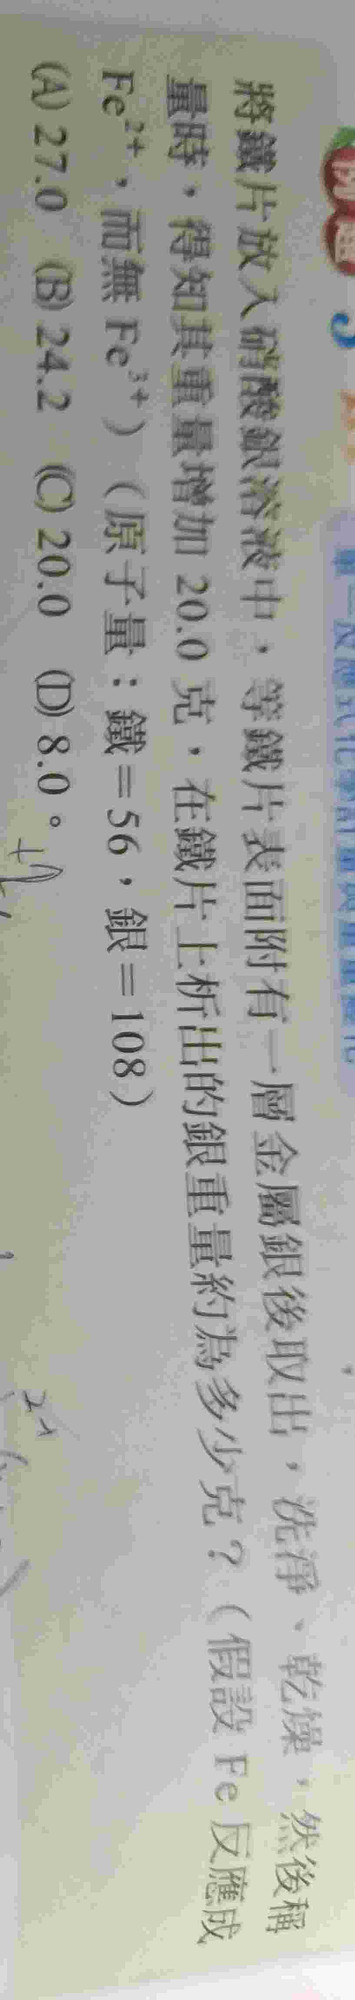 例題 3
將鐵片放入硝酸銀溶液中，等鐵片表面附有一層金屬銀後取出，洗淨、乾燥，然後稱
量時，得知其重量增加 20.0 克，在鐵片上析出的銀重量約為多少克？（假設 Fe 反應成
Fe²⁺，而無 Fe³⁺）（原子量：鐵＝56，銀＝108）
(A) 27.0 (B) 24.2 (C) 20.0 (D) 8.0。